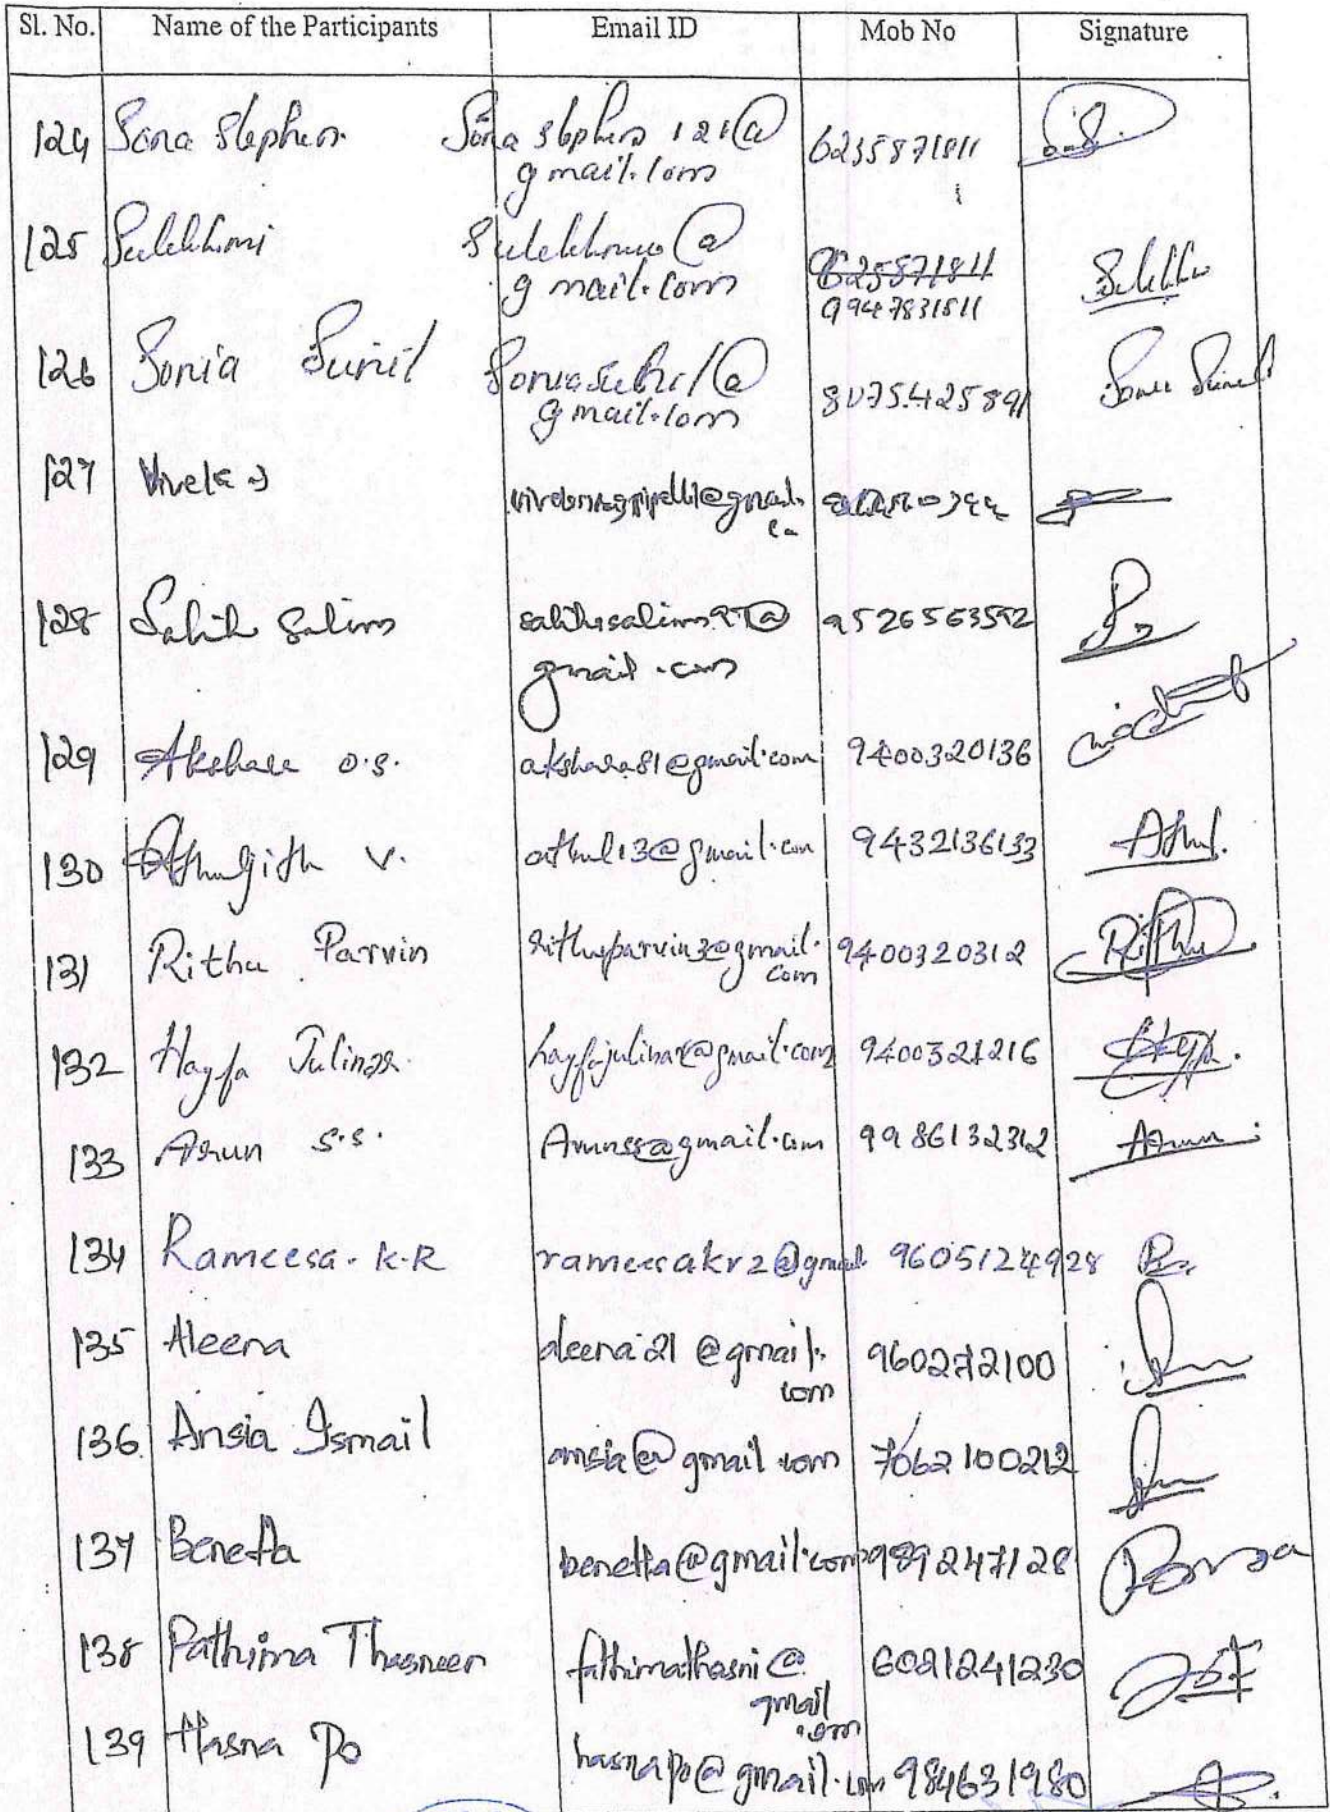 Sl. No. Name of the Participants Email ID Mob No Signature
124 Sona Stephen Sona stephen 121@ 6235871811
gmail.com
125 Sulekhmi @
gmail.com 6235871811
9947831811
126 Sonia Sunil @ 8075425891 Sonia Sunil
gmail.com
127 Vivek
128 Salih Salim 9526563592
gmail.com
129 Akshara O.S. akshara81@gmail.com 9400320136
130 Athuljith V. athul13@gmail.com 9432136133 Athul.
131 Rithu Parvin rithuparvin3@gmail. 9400320312 Rithu
com
132 Hayfa Julinar. hayfajulinar@gmail.com 9400321216
133 Arun S.S. Arunss@gmail.com 9986132312 Arun
134 Rameesa. K.R rameesakr2@gmail 9605124928
135 Aleena aleena21@gmail. 960272100
com
136 Ansia Ismail ansia@gmail.com 7062100212
137 Benetta benetta@gmail.com 989247128
138 Fathima Thasneer fathimathasni@ 6021241230
gmail
.com
139 Hasna Po hasnapo@gmail.com 984631980